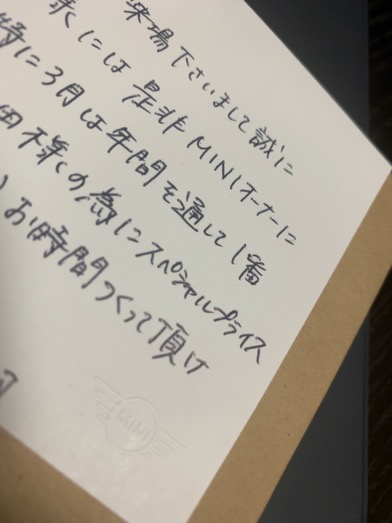 来場下さいまして誠に
様には是非MINIオーナーに
特に3月は年間を通して1番
田様の為にスペシャルプライス
お時間つくって頂け
MINI